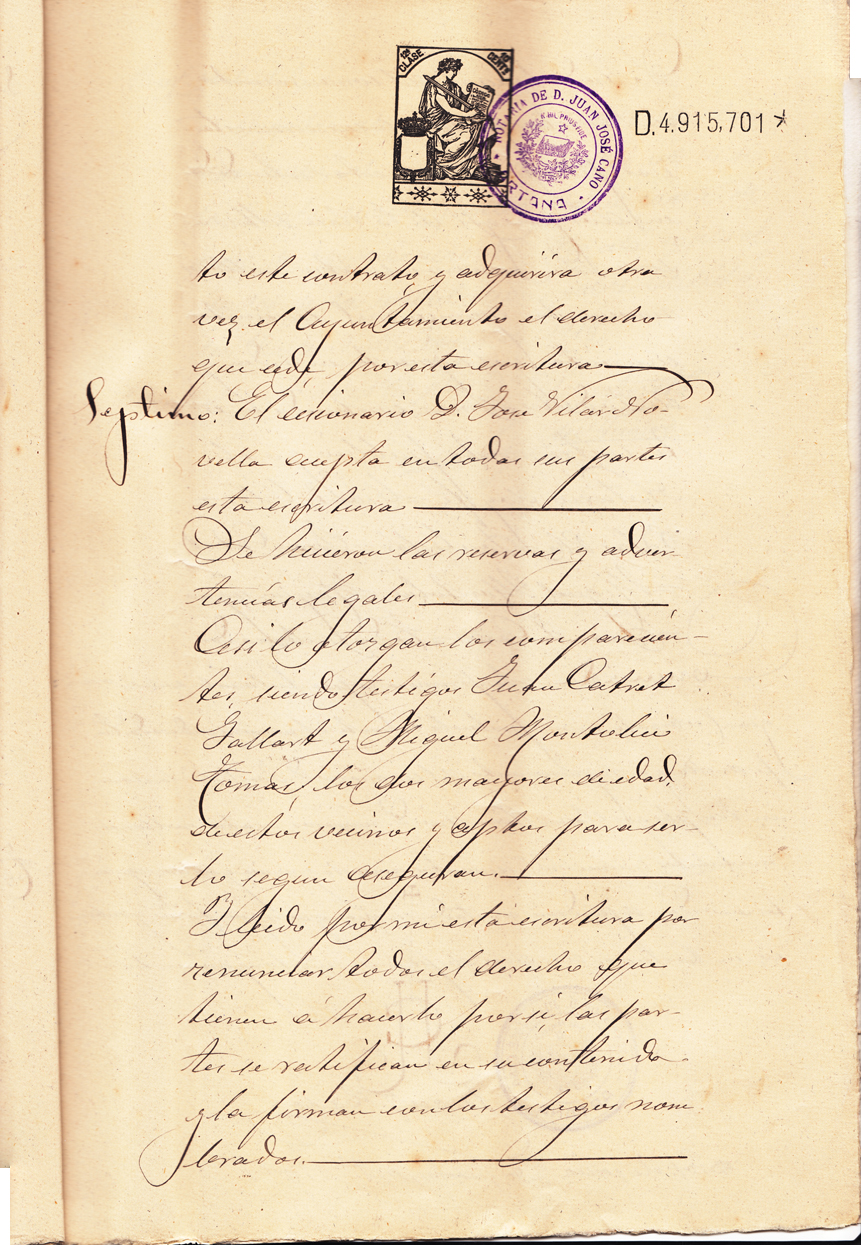 12ª CLASE
CENTS
NOTARIA DE D. JUAN JOSÉ CANO
NIHIL PRIUS FIDE
ARTANA
D.4.915,701*
to este contrato, y adquirira otra
vez, el Ayuntamiento el derecho
que cede, por esta escritura
Septimo: El cesionario D. Jose Vilar No-
vella acepta en todas sus partes
esta escritura
Se hicieron las reservas y adver-
tencias legales
Asi lo otorgan los comparecien-
tes, siendo testigos Juan Catret
Gallart y Miguel Montoliu
Tomas, los dos mayores de edad,
de estos vecinos y aptos para ser-
lo segun aseguran.
Y leido por mi esta escritura por
renunciar todos el derecho que
tienen á hacerlo por si, las par-
tes se ratifican en su contenido
y la firman con los testigos nom
brados.